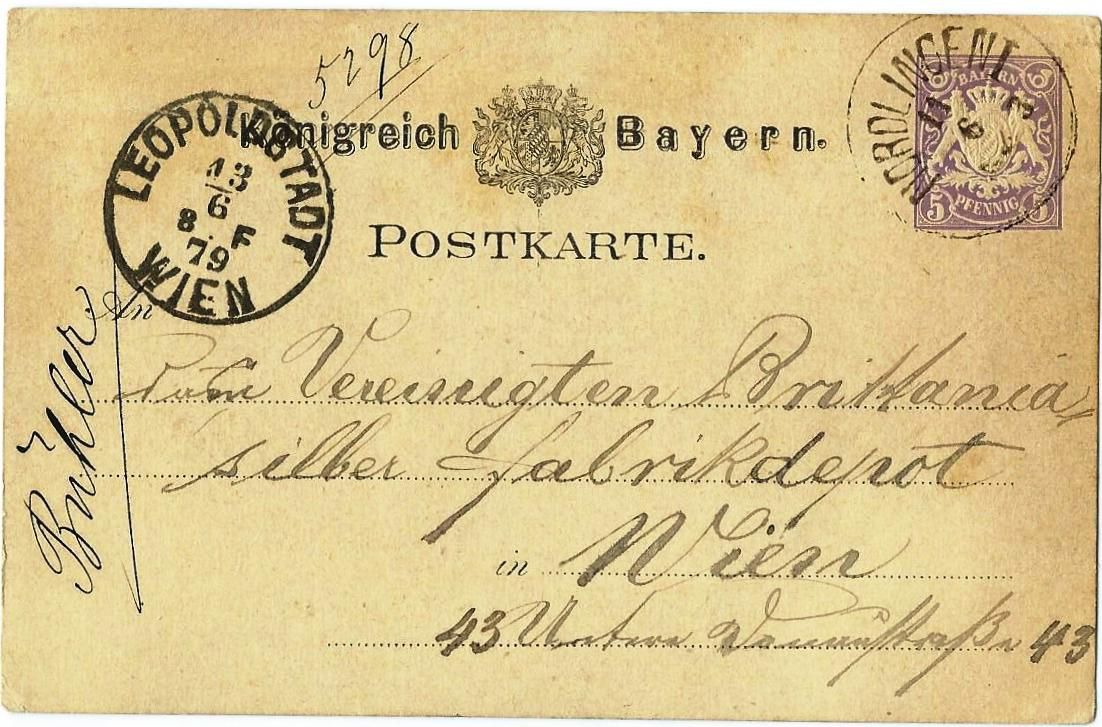 5298
Königreich Bayern.
POSTKARTE.
LEOPOLDSTADT
13
6
8. F
79
WIEN
NÖRDLINGEN I
11
6
BAYERN
5 PFENNIG 5
An
Vereinigten Brittania
silber fabrikdepot
in Wien
43 Untere Donaustraße 43
Bühler